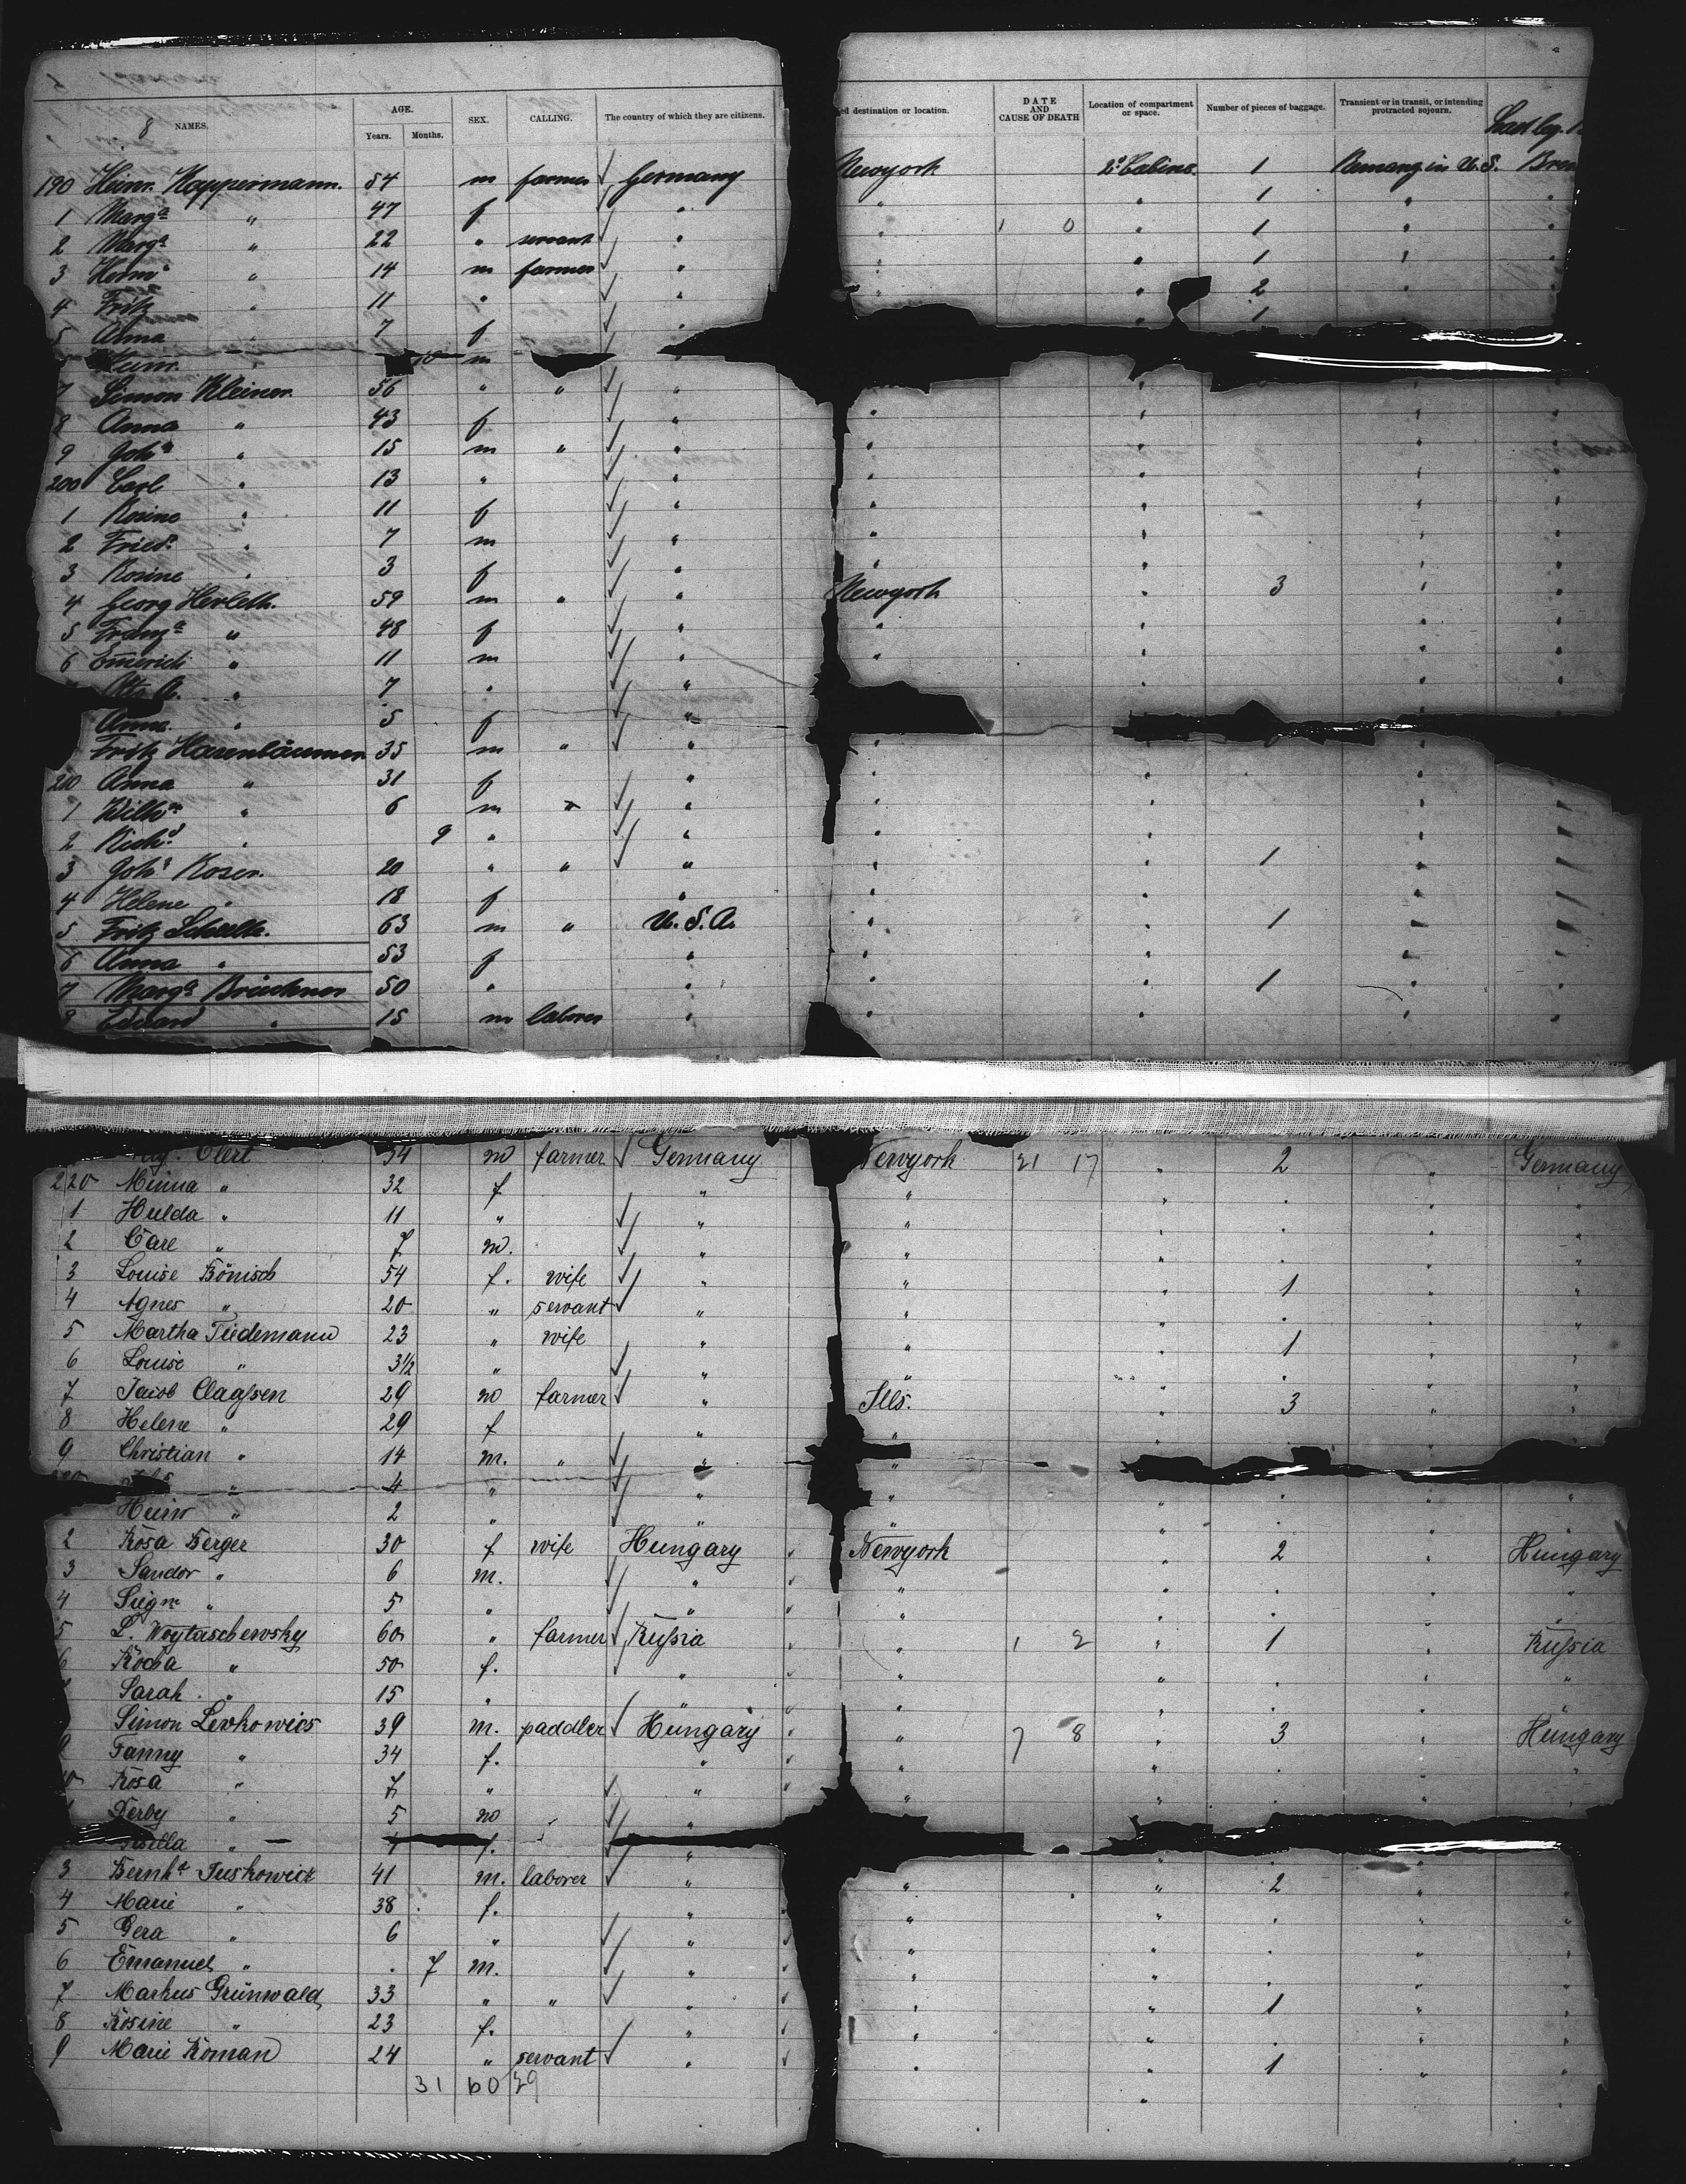 NAMES. AGE. Years. Months. SEX. CALLING. The country of which they are citizens. ed destination or location. DATE AND CAUSE OF DEATH Location of compartment or space. Number of pieces of baggage. Transient or in transit, or intending protracted sojourn.
8
190 Heinr. Kappermann. 54 m farmer Germany Newyork 2d Cabine. 1 in U.S. Brem
1 Marga " 47 f " " " 1 " "
2 Marga " 22 " servant " " 1 0 " 1 " "
3 Herm " 14 m farmer " " " 1 " "
4 Fritz " 11 " " " " 2 " "
5 Alma " 7 f " " 1
Heinr. 10 m "
7 Simon Kleiner 56 " " " " " "
8 Anna " 43 f " " " " "
9 Joh " 15 m " " " " " "
200 Carl " 13 " " " " " "
1 Rosine " 11 f " " " " "
2 Fried. " 7 m " " " " "
3 Rosine " 3 f " " " " "
4 Georg Herleth. 59 m " " Newyork " 3 " "
5 Franza " 48 f " " " " "
6 Emerich " 11 m " " " " "
Otto A. " 7 " " " "
Anna " 5 f "
Fritz Hasenbäumer 35 m " " " " " "
210 Anna " 31 f " " " " "
1 Wilhm " 6 m " " " " " "
2 Richd. " 9 " " " " " "
3 Joh Rosen. 20 " " " " " 1 " "
4 Helene " 18 f " " " " "
5 Fritz Scheelk. 63 m " U.S.A. " " 1 " "
6 Anna " 53 f " " " " "
7 Marga Brückner 50 " " " " 1 " "
8 Eduard " 15 m laborer " " " " "
Clert 34 m farmer Germany Newyork 21 17 " 2 " Germany
220 Minna " 32 f " " " . " "
1 Hulda " 11 " " " " . " "
2 Carl " 7 m. " " " . " "
3 Louise Bönisch 54 f. wife " " " 1 " "
4 Agnes " 20 " servant " " " . " "
5 Martha Tiedemann 23 " wife " " " 1 " "
6 Louise " 3½ " " " " . " "
7 Jacob Claassen 29 m farmer " Ills. " 3 " "
8 Helene " 29 f " " " . " "
9 Christian " 14 m. " " "
" 4 " " " . " "
Heinr " 2 " " " " . " "
2 Rosa Berger 30 f wife Hungary Newyork " 2 " Hungary
3 Sandor " 6 m. " " " . " "
4 Siegm " 5 " " " " . " "
5 L. Woytaschewsky 60 " farmer Russia " 1 2 " 1 " Russia
6 " 50 f. " " " . " "
Sarah " 15 " " " . " "
Simon Levkowics 39 m. paddler Hungary " 7 8 " 3 " Hungary
Fanny " 34 f. " " " . " "
Rosa " 7 " " " " . " "
" 5 m "
" f. "
3 Bernhd Juskowicz 41 m. laborer " " " 2 " "
4 Marie " 38 f. " " " . " "
5 Gera " 6 " " " " . " "
6 Emanuel " . 7 m. " " " . " "
7 Markus Grünwald 33 " " " " " 1 " "
8 Rosine " 23 f. " " " . " "
9 Marie Roman 24 " servant " " " 1 " "
31 60 29